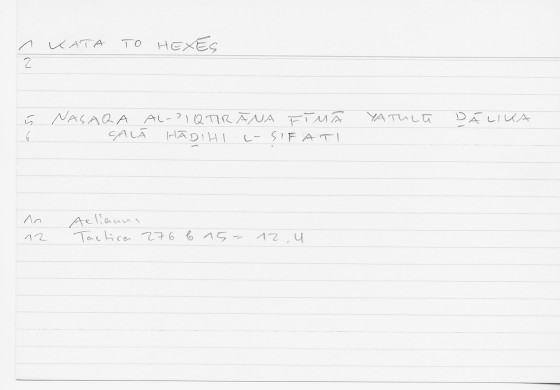 1 KATA TO HEXĒS
2
5 NASAQA AL-ʾIQTIRĀNA FĪMĀ YATULŪ ḎĀLIKA
6 ʿALĀ HĀḎIHI L-ṢIFATI
11 Aelianus
12 Tactica 276 b 15 = 12.4